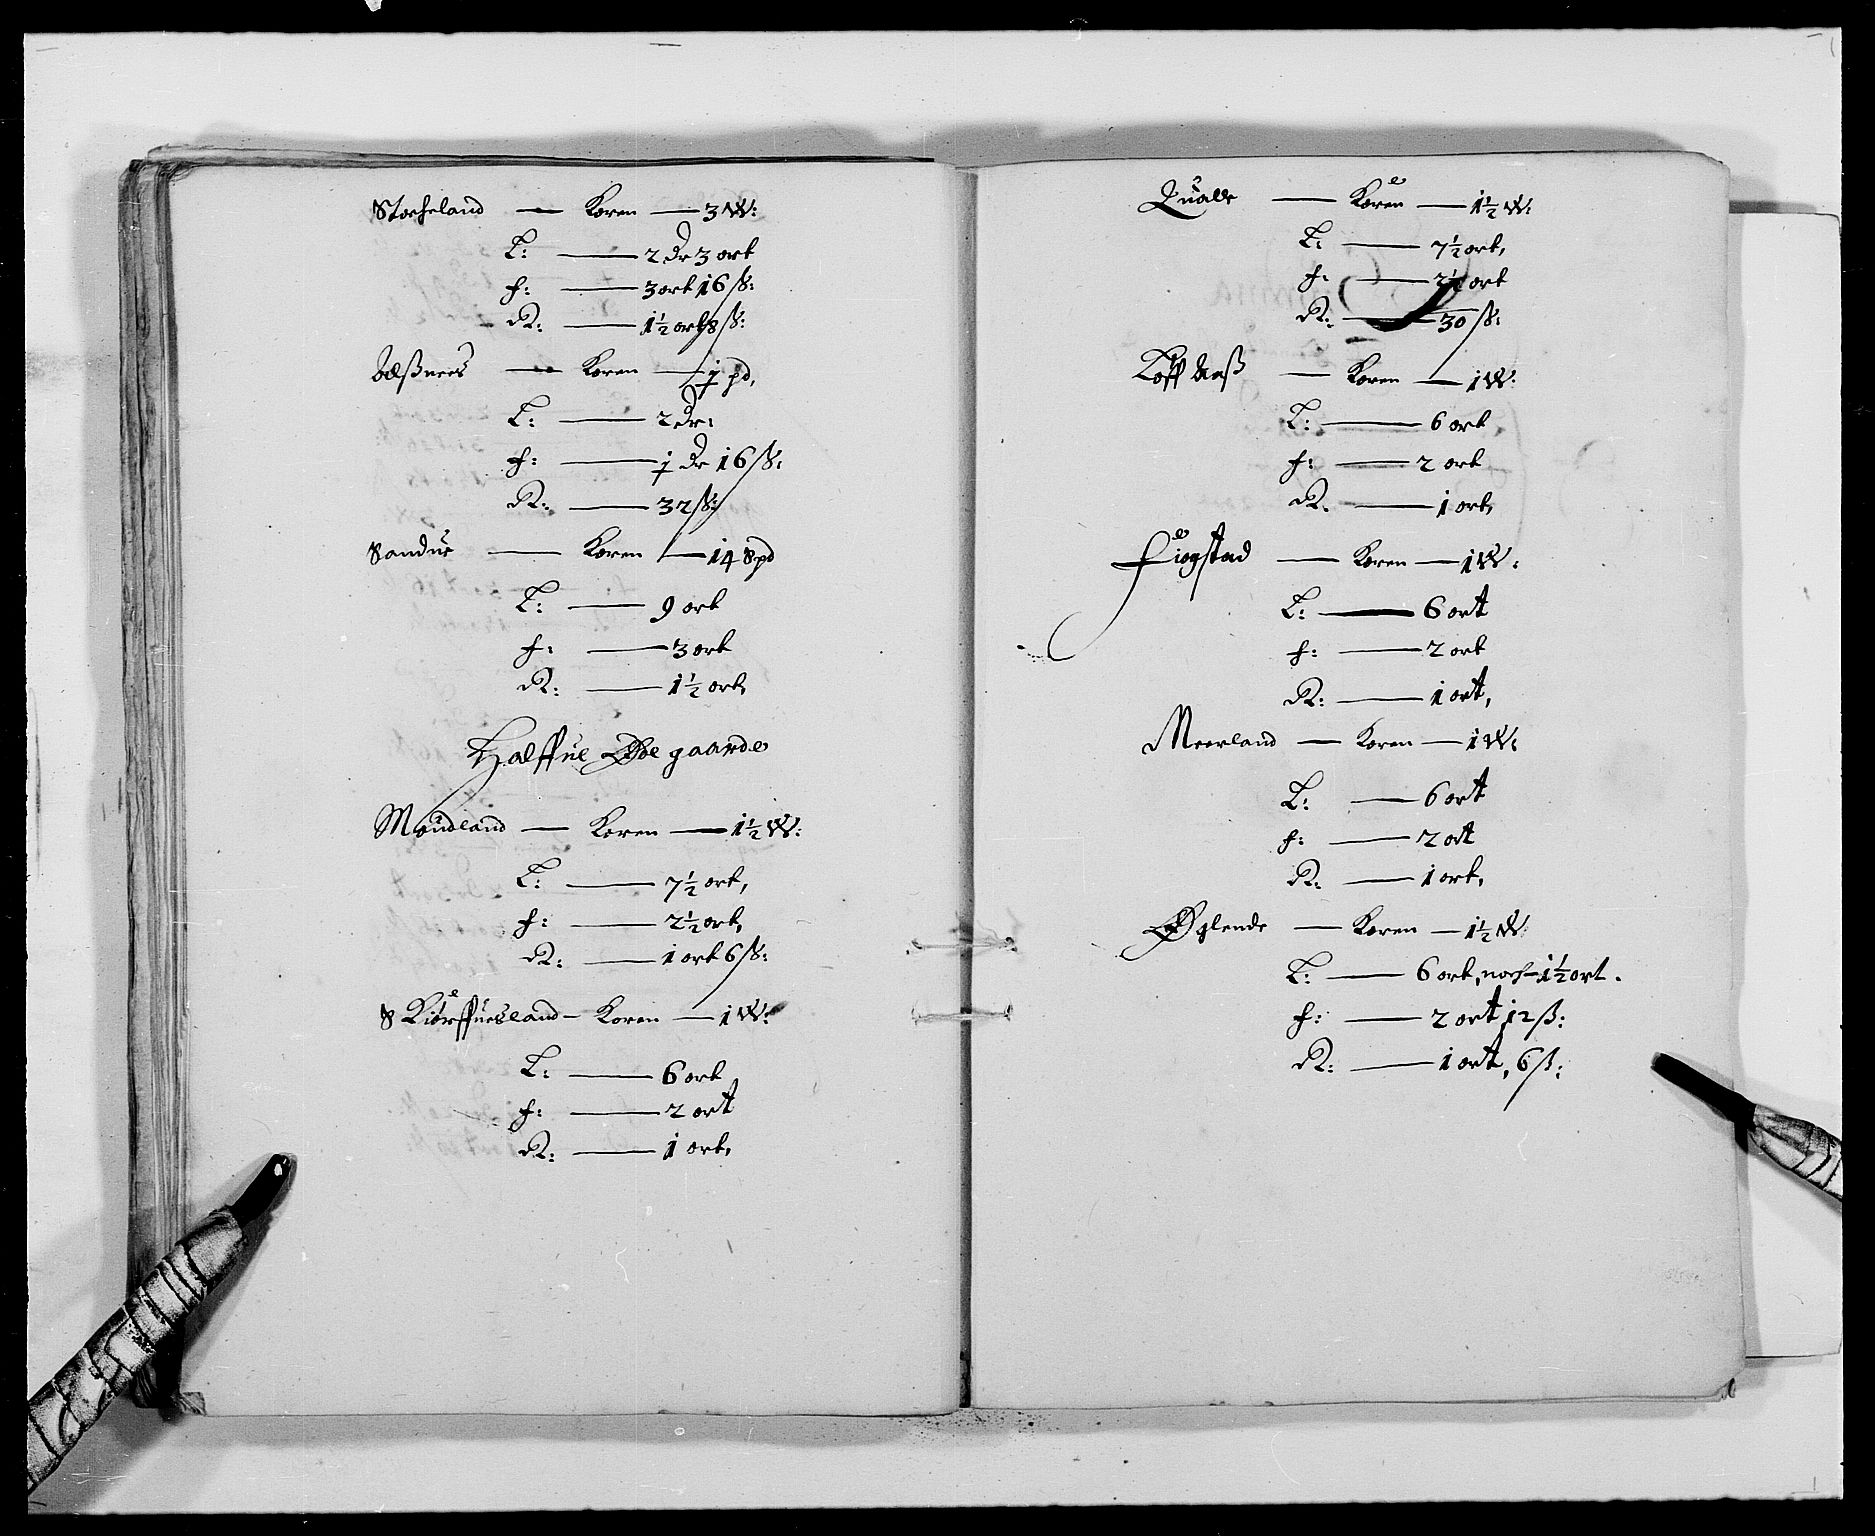 Storheland — Koren — 3 W:
L: — 2 dr 3 ort
f: — 3 ort 16 ß:
R: — 1½ ort 8 ß:
Bæßnees — Koren — 1 pd,
L: — 2 dr:
f: — 1 dr 16 ß:
R: — 32 ß:
Sandue — Koren — 14 8pd
L: — 9 ort
f: — 3 ort
R: — 1½ ort,
Halffue Øde gaarde
Maudland — Koren — 1½ W:
L: — 7½ ort,
f: — 2½ ort,
R: — 1 ort 6 ß:
Kiørffuesland — Koren — 1 W:
L: — 6 ort
f: — 2 ort
R: — 1 ort,
Qualle — Koren — 1½ W:
L: — 7½ ort,
f: — 2½ ort
R: — 30 ß:
Koren — 1 W:
L: — 6 ort
f: — 2 ort
R: — 1 ort,
Fiogstad — Koren — 1 W:
L: — 6 ort
f: — 2 ort
R: — 1 ort,
Meerland — Koren — 1 W:
L: — 6 ort
f: — 2 ort
R: — 1 ort,
Øglende — Koren — 1½ W:
L: — 6 ort, noch 1½ ort.
f: — 2 ort 12 ß:
R: — 1 ort, 6 ß: